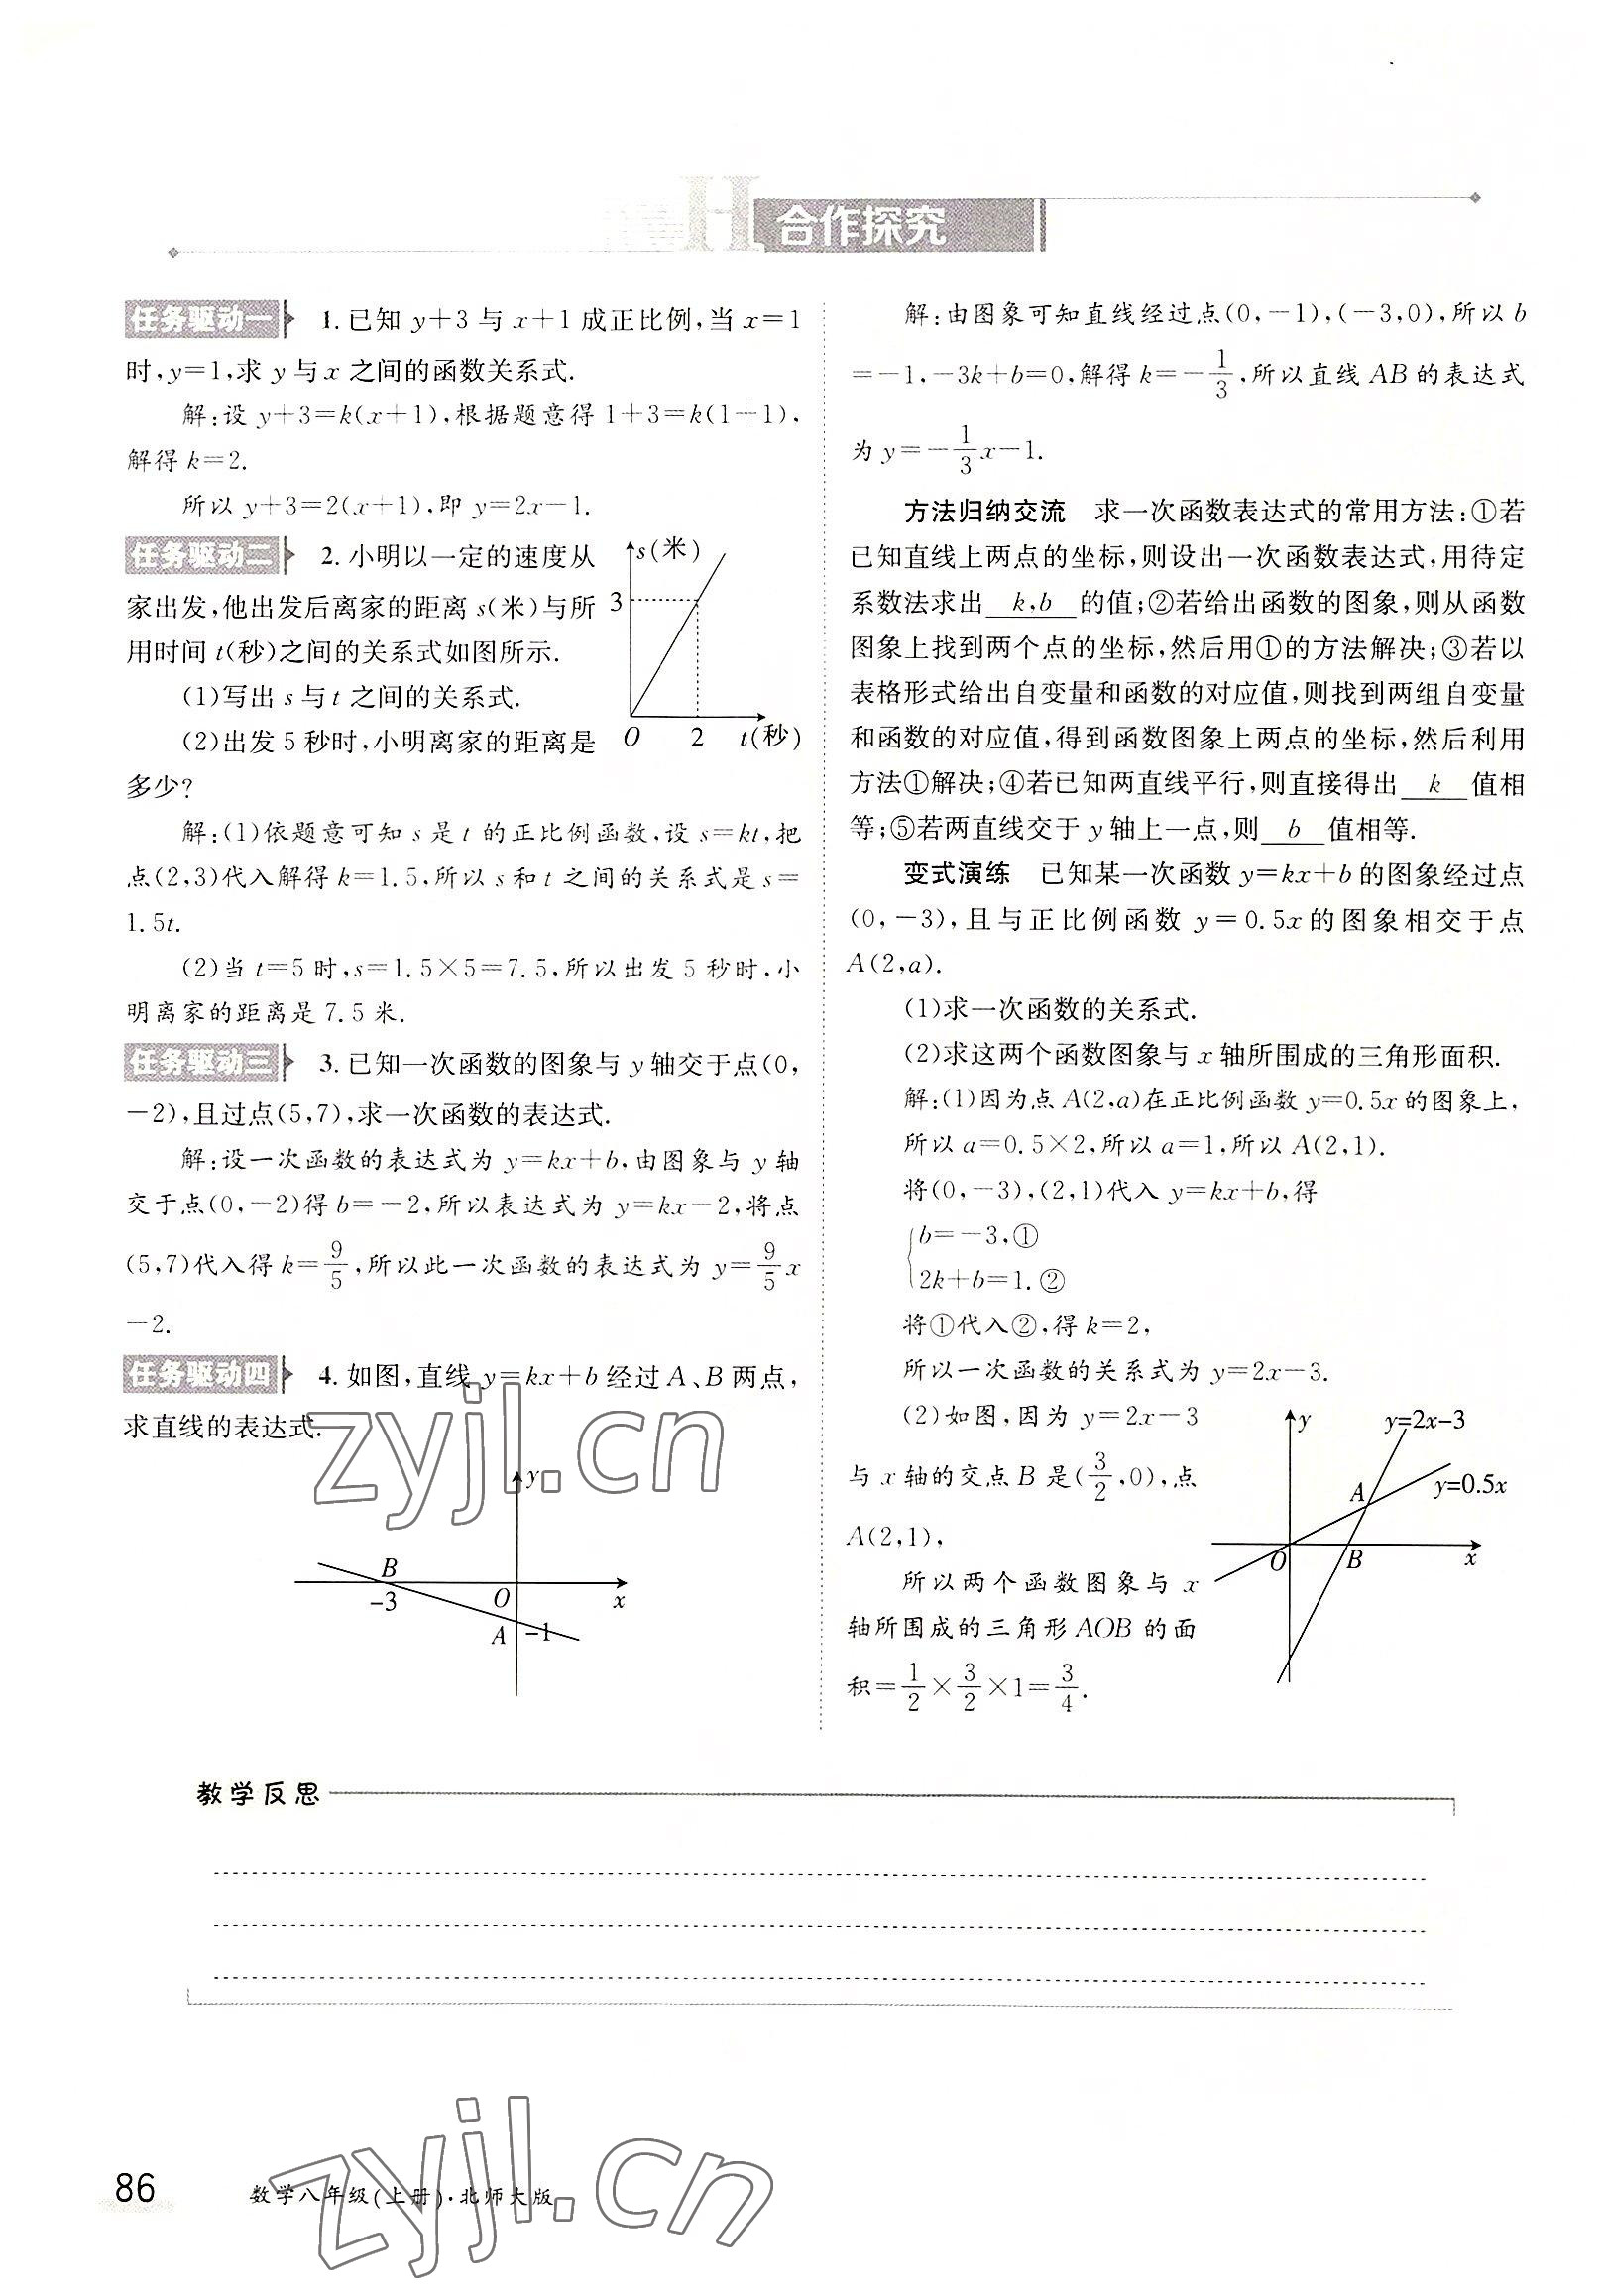 H 合作探究
任务驱动一 1.已知 y+3 与 x+1 成正比例,当 x=1
时,y=1,求 y 与 x 之间的函数关系式.
解:设 y+3=k(x+1),根据题意得 1+3=k(1+1),
解得 k=2.
所以 y+3=2(x+1),即 y=2x-1.
任务驱动二 2. 小明以一定的速度从
家出发,他出发后离家的距离 s(米)与所
用时间 t(秒)之间的关系式如图所示.
(1)写出 s 与 t 之间的关系式.
(2)出发 5 秒时,小明离家的距离是
多少?
s(米)
3
O 2 t(秒)
解:(1)依题意可知 s 是 t 的正比例函数,设 s=kt,把
点(2,3)代入解得 k=1.5,所以 s 和 t 之间的关系式是 s=
1.5t.
(2)当 t=5 时,s=1.5×5=7.5,所以出发 5 秒时,小
明离家的距离是 7.5 米.
任务驱动三 3.已知一次函数的图象与 y 轴交于点(0,
-2),且过点(5,7),求一次函数的表达式.
解:设一次函数的表达式为 y=kx+b,由图象与 y 轴
交于点(0,-2)得 b=-2,所以表达式为 y=kx-2,将点
(5,7)代入得 k=9/5,所以此一次函数的表达式为 y=9/5x
-2.
任务驱动四 4.如图,直线 y=kx+b 经过 A、B 两点,
求直线的表达式.
y
B
-3 O x
A -1
解:由图象可知直线经过点(0,-1),(-3,0),所以 b
=-1,-3k+b=0,解得 k=-1/3,所以直线 AB 的表达式
为 y=-1/3x-1.
方法归纳交流 求一次函数表达式的常用方法:①若
已知直线上两点的坐标,则设出一次函数表达式,用待定
系数法求出 k,b 的值;②若给出函数的图象,则从函数
图象上找到两个点的坐标,然后用①的方法解决;③若以
表格形式给出自变量和函数的对应值,则找到两组自变量
和函数的对应值,得到函数图象上两点的坐标,然后利用
方法①解决;④若已知两直线平行,则直接得出 k 值相
等;⑤若两直线交于 y 轴上一点,则 b 值相等.
变式演练 已知某一次函数 y=kx+b 的图象经过点
(0,-3),且与正比例函数 y=0.5x 的图象相交于点
A(2,a).
(1)求一次函数的关系式.
(2)求这两个函数图象与 x 轴所围成的三角形面积.
解:(1)因为点 A(2,a)在正比例函数 y=0.5x 的图象上,
所以 a=0.5×2,所以 a=1,所以 A(2,1).
将(0,-3),(2,1)代入 y=kx+b,得
{b=-3,①
2k+b=1.②
将①代入②,得 k=2,
所以一次函数的关系式为 y=2x-3.
(2)如图,因为 y=2x-3
与 x 轴的交点 B 是(3/2,0),点
A(2,1),
所以两个函数图象与 x
轴所围成的三角形 AOB 的面
积=1/2×3/2×1=3/4.
y y=2x-3
A y=0.5x
O B x
教学反思
86
数学八年级(上册)·北师大版
zyjl.cn
zyjl.cn